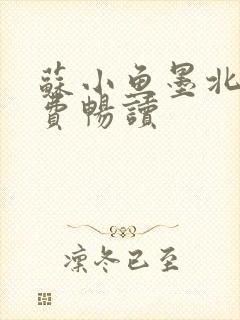 蘇小魚墨北
費暢讀
凜冬已至